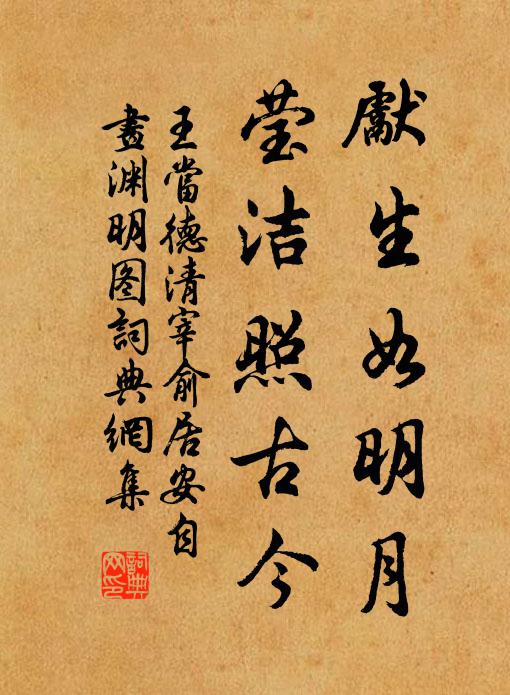 獻生如明月
莹洁照古今
王當德清宰俞居安自
畫渊明图詞典網集
詞典网印